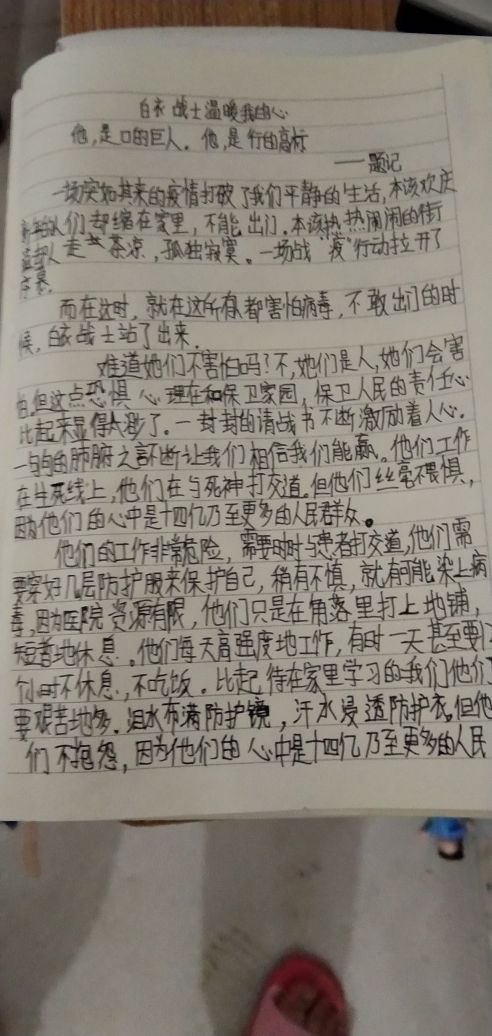 白衣战士温暖我的心
他,是口的巨人。他,是行的高标
——题记
一场突如其来的疫情打破了我们平静的生活,本该欢庆
人们却缩在家里,不能出门。本该热热闹闹的街
人走茶凉,孤独寂寞。一场战“疫”行动拉开了
序幕。
而在这时,就在这所有人都害怕病毒,不敢出门的时
候,白衣战士站了出来。
难道她们不害怕吗?不,她们是人,她们会害
怕,但这点恐惧心理在和保卫家园,保卫人民的责任心
比起来显得太渺了。一封封的请战书不断激励着人心。
一句句的肺腑之言不断让我们相信我们能赢。他们工作
在生死线上,他们在与死神打交道。但他们丝毫畏惧,
因为他们的心中是十四亿乃至更多的人民群众。
他们的工作非常危险,需要时时与患者打交道,他们需
要穿好几层防护服来保护自己,稍有不慎,就有可能染上病
毒,因为医院资源有限,他们只是在角落里打上地铺,
短暂地休息。他们每天高强度地工作,有时一天甚至要
个小时不休息,不吃饭。比起待在家里学习的我们他们
要艰苦地多。泪水布满防护镜,汗水浸透防护衣。但他
们不抱怨,因为他们的心中是十四亿乃至更多的人民